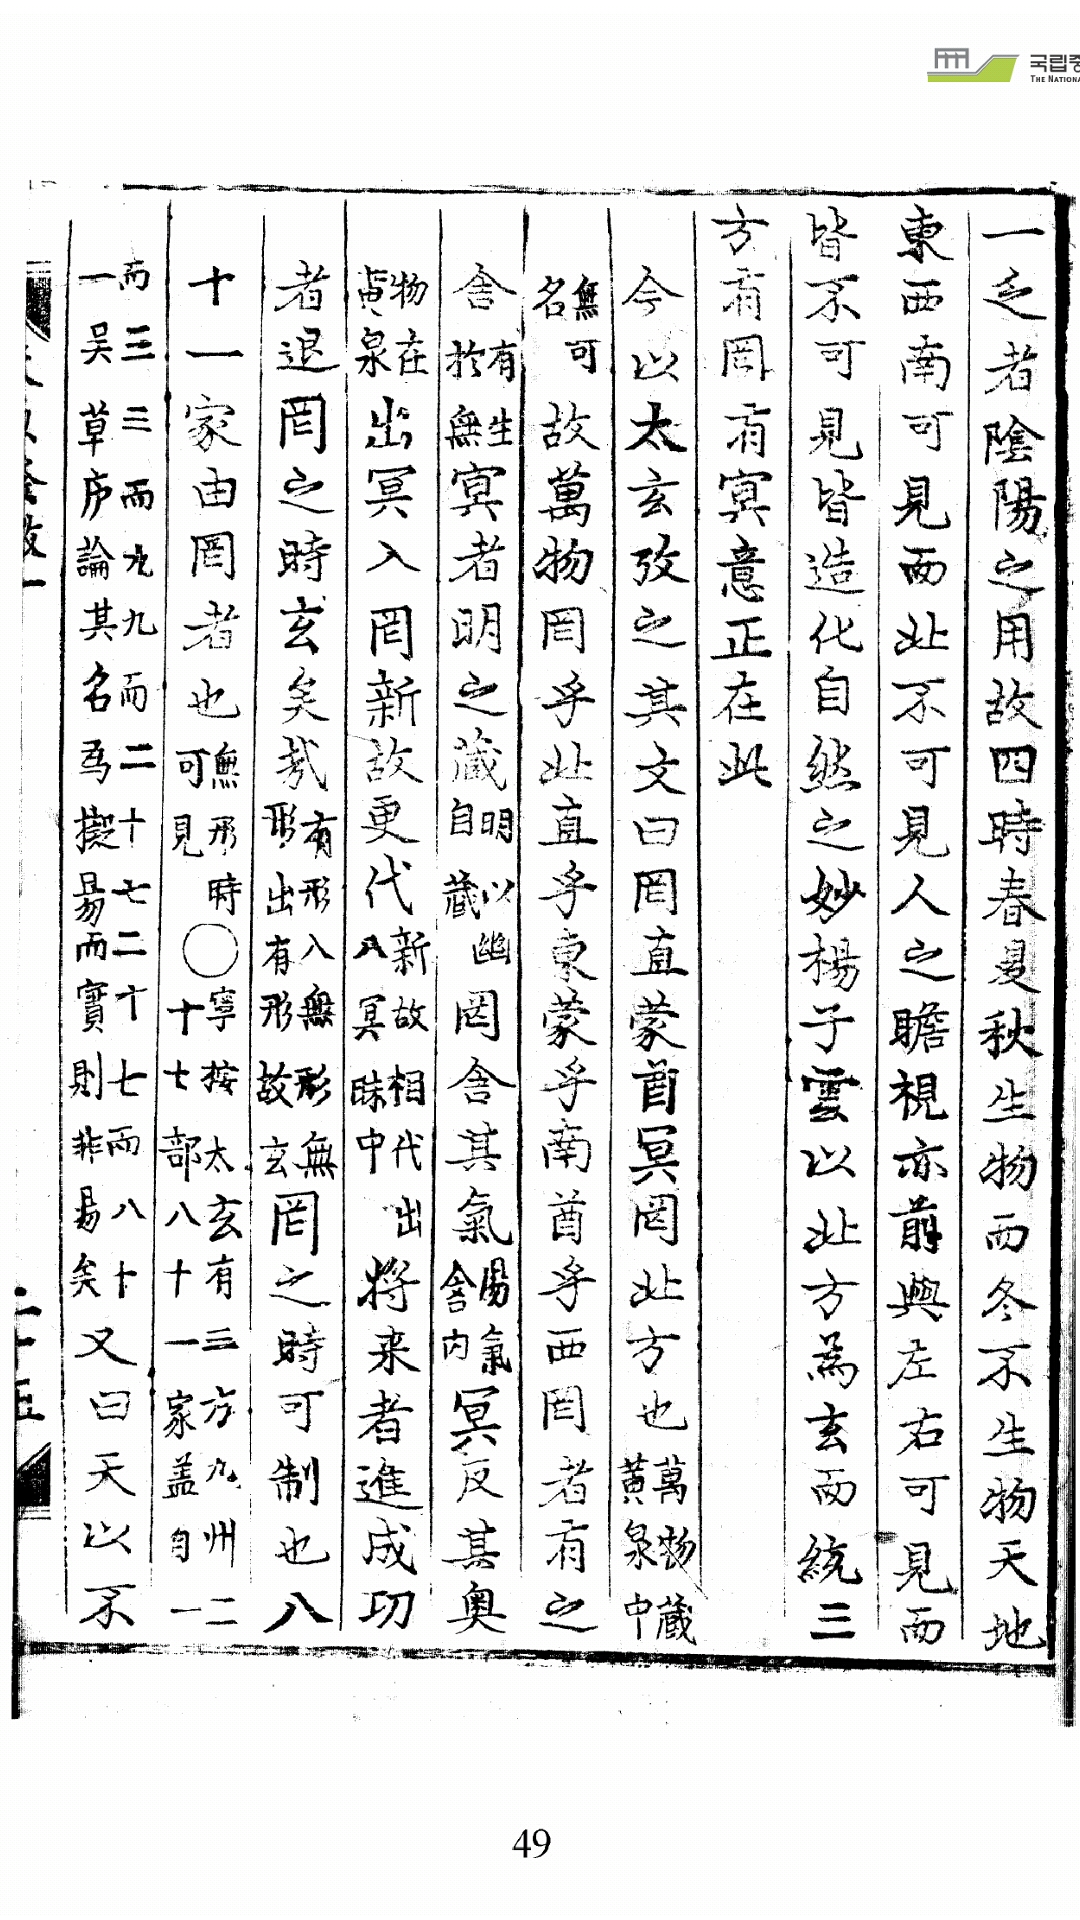 국립중
THE NATIONA
一之者陰陽之用故四時春夏秋生物而冬不生物天地
東西南可見而北不可見人之瞻視亦前與左右可見而
皆不可見皆造化自然之妙楊子雲以北方為玄而統三
方有罔有冥意正在此
今以太玄攷之其文曰罔直蒙酋冥罔北方也萬物藏黃泉中
無可名故萬物罔乎北直乎東蒙乎南酋乎西罔者有之
舍有生於無冥者明之藏明以幽自藏罔舍其氣陽氣舍內冥反其奧
物在黃泉出冥入罔新故更代新故相代出入冥昧中將来者進成功
者退罔之時玄矣㢤有形入無形出有形無形故玄罔之時可制也八
十一家由罔者也無形時可見〇寧按太玄有三方九州二十七部八十一家盖自一
而三三而九九而二十七二十七而八十一吴草庐論其名爲擬易而實則非易矣又曰天以不
49